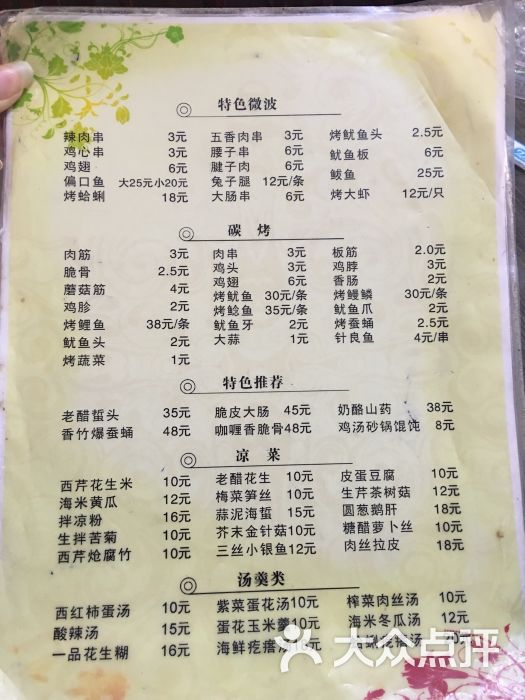 特色微波
辣肉串 3元 五香肉串 3元 烤鱿鱼头 2.5元
鸡心串 3元 腰子串 6元 鱿鱼板 6元
鸡翅 6元 腱子肉 6元 鲅鱼 25元
偏口鱼 大25元小20元 兔子腿 12元/条 烤大虾 12元/只
烤蛤蜊 18元 大肠串 6元
碳烤
肉筋 3元 肉串 3元 板筋 2.0元
脆骨 2.5元 鸡头 3元 鸡脖 3元
蘑菇筋 4元 鸡翅 6元 香肠 2元
鸡胗 2元 烤鱿鱼 30元/条 烤鳗鳞 30元/条
烤鲤鱼 38元/条 烤鲶鱼 35元/条 鱿鱼爪 2元
鱿鱼头 2元 鱿鱼牙 2元 烤蚕蛹 2.5元
烤蔬菜 1元 大蒜 1元 针良鱼 4元/串
特色推荐
老醋蜇头 35元 脆皮大肠 45元 奶酪山药 38元
香竹爆蚕蛹 48元 咖喱香脆骨 48元 鸡汤砂锅馄饨 8元
凉菜
西芹花生米 10元 老醋花生 10元 皮蛋豆腐 10元
海米黄瓜 12元 梅菜笋丝 10元 生芹茶树菇 12元
拌凉粉 16元 蒜泥海蜇 15元 圆葱鹅肝 18元
生拌苦菊 10元 芥末金针菇 10元 糖醋萝卜丝 10元
西芹炝腐竹 10元 三丝小银鱼 12元 肉丝拉皮 18元
汤羹类
西红柿蛋汤 10元 紫菜蛋花汤 10元 榨菜肉丝汤 10元
酸辣汤 15元 蛋花玉米羹 10元 海米冬瓜汤 12元
一品花生糊 16元 海鲜疙瘩汤
大众点评